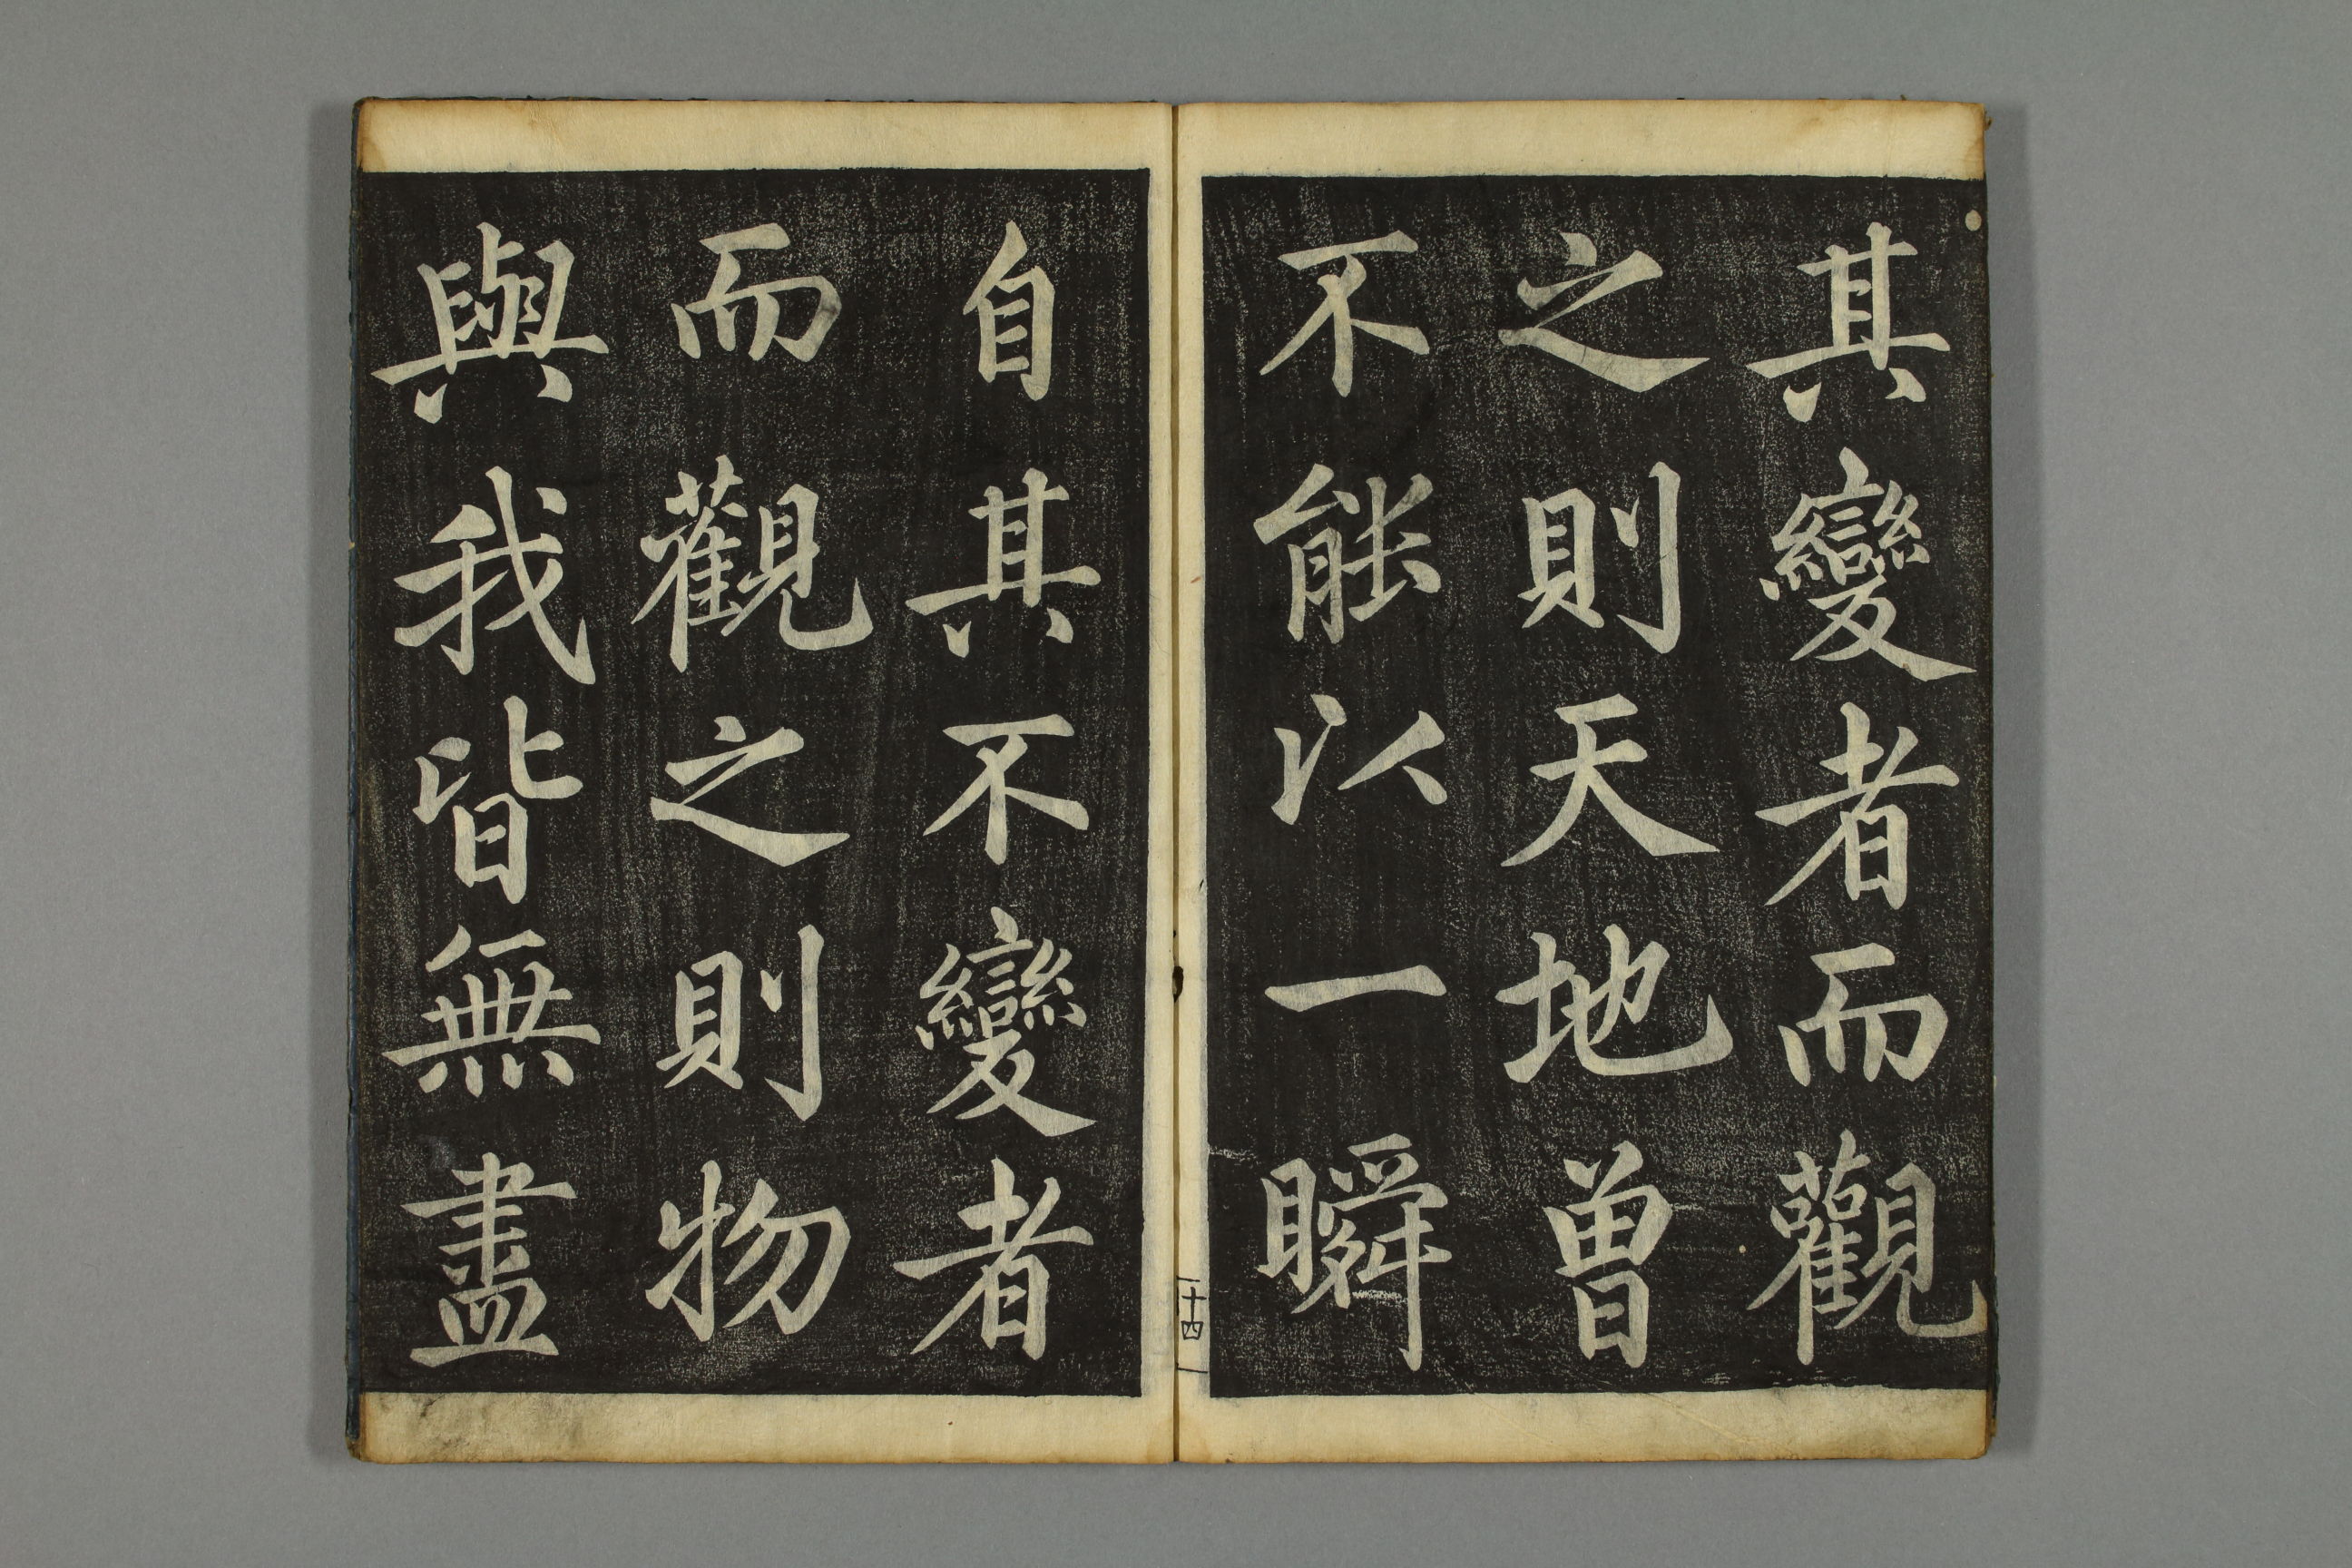 其變者而觀
之則天地曾
不能以一瞬
自其不變者
而觀之則物
與我皆無盡
十四